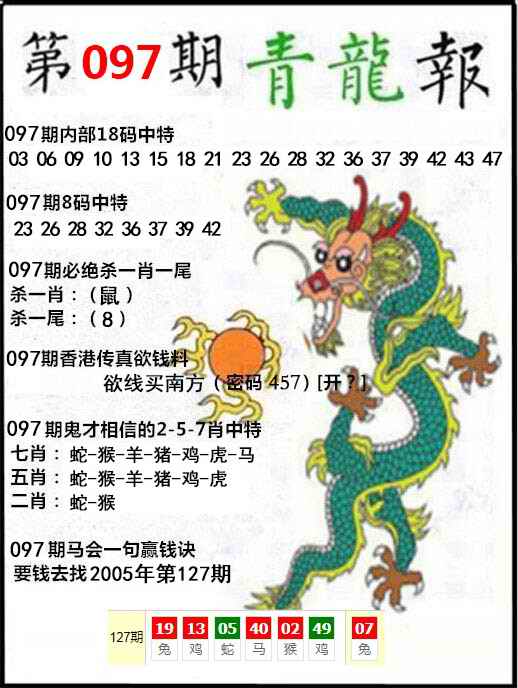 第097期青龍報
097期内部18码中特
03 06 09 10 13 15 18 21 23 26 28 32 36 37 39 42 43 47
097期8码中特
23 26 28 32 36 37 39 42
097期必绝杀一肖一尾
杀一肖：（鼠）
杀一尾：（8）
097期香港传真欲钱料
欲线买南方（密码 457）[开？]
097期鬼才相信的2-5-7肖中特
七肖：蛇-猴-羊-猪-鸡-虎-马
五肖：蛇-猴-羊-猪-鸡-虎
二肖：蛇-猴
097期马会一句赢钱诀
要钱去找2005年第127期
127期 19 13 05 40 02 49 07
兔 鸡 蛇 马 猴 鼠 兔